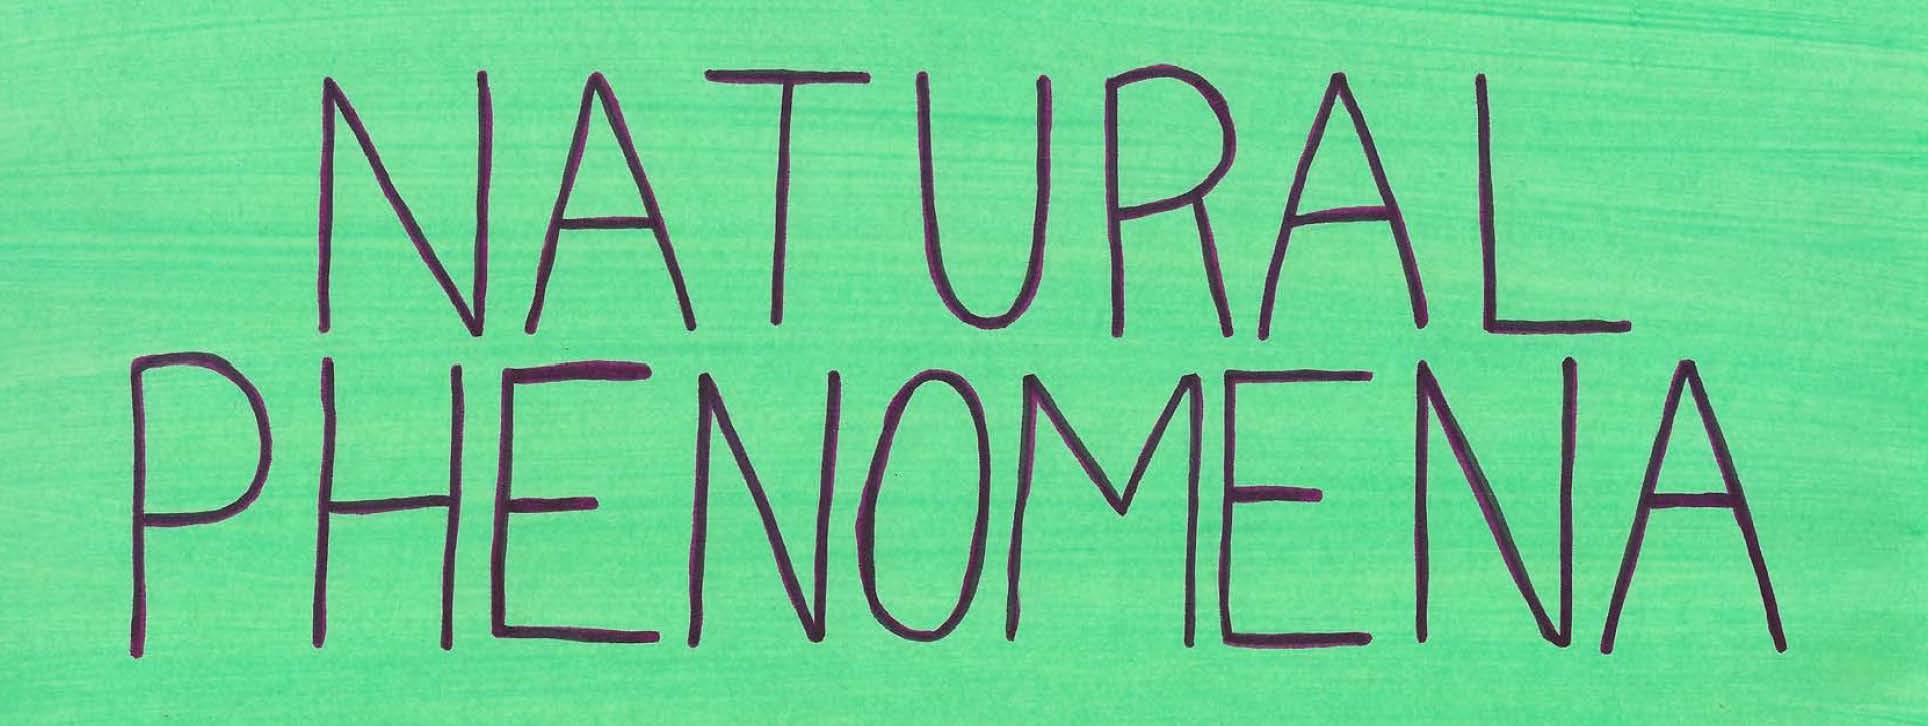 NATURAL
PHENOMENA